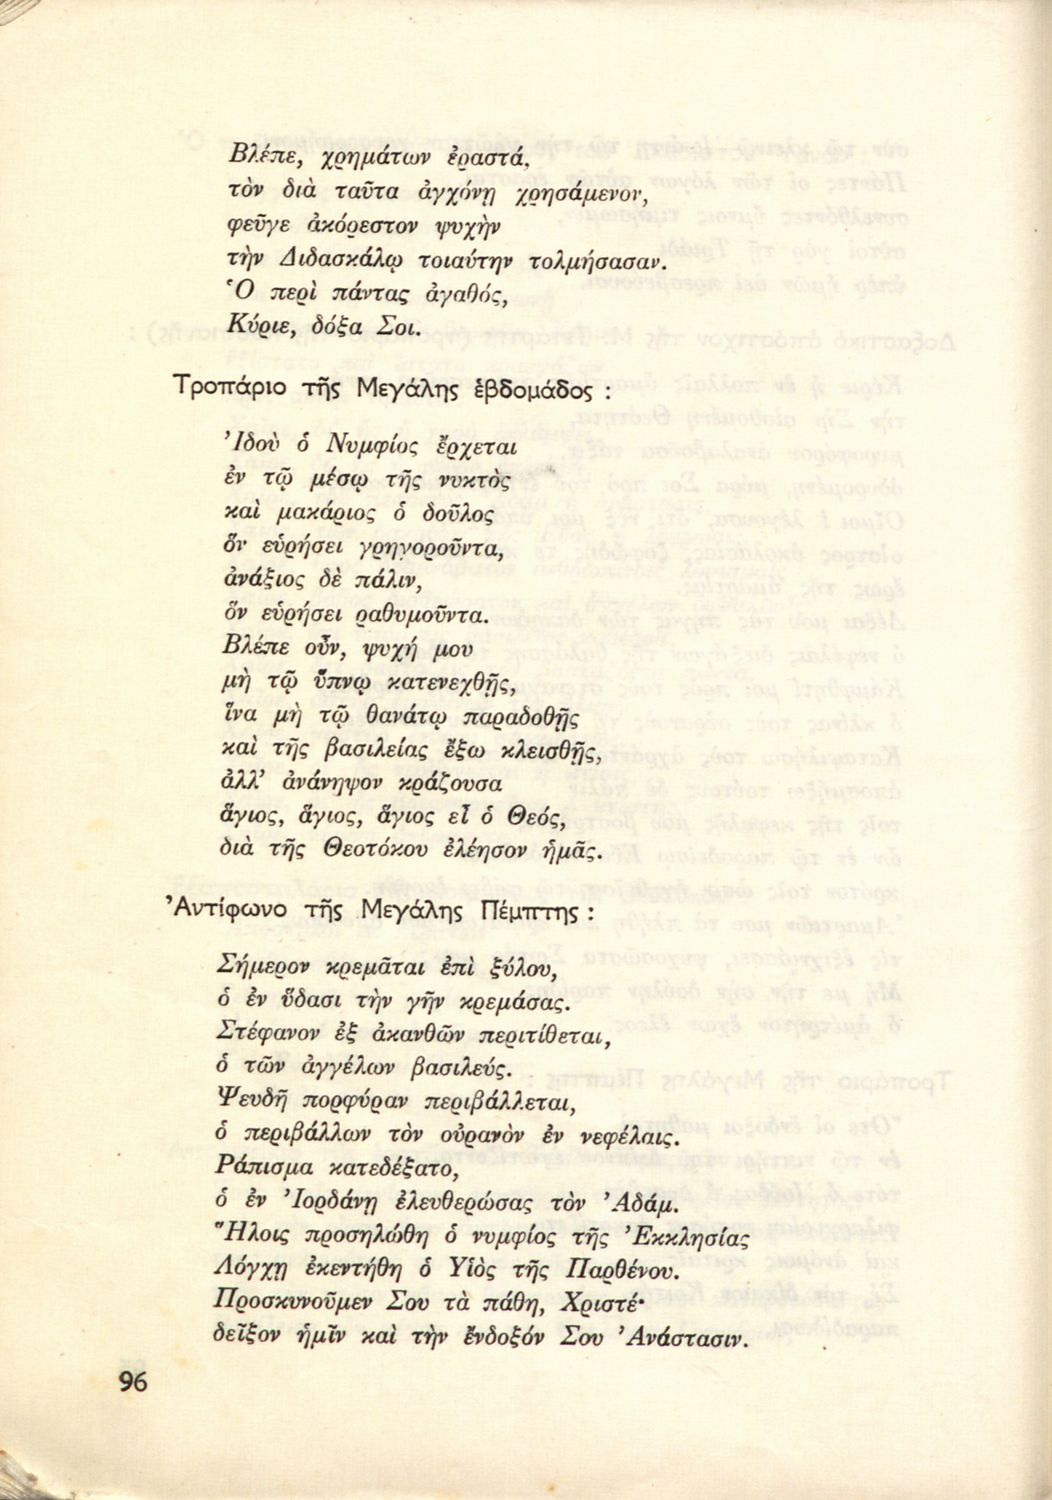 Βλέπε, χρημάτων ἐραστά,
τὸν διὰ ταῦτα ἀγχόνῃ χρησάμενον,
φεῦγε ἀκόρεστον ψυχὴν
τὴν Διδασκάλῳ τοιαύτην τολμήσασαν.
Ὁ περὶ πάντας ἀγαθός,
Κύριε, δόξα Σοι.
Τροπάριο τῆς Μεγάλης ἑβδομάδος :
Ἰδοὺ ὁ Νυμφίος ἔρχεται
ἐν τῷ μέσῳ τῆς νυκτὸς
καὶ μακάριος ὁ δοῦλος
ὃν εὑρήσει γρηγοροῦντα,
ἀνάξιος δὲ πάλιν,
ὃν εὑρήσει ραθυμοῦντα.
Βλέπε οὖν, ψυχή μου
μὴ τῷ ὕπνῳ κατενεχθῇς,
ἵνα μὴ τῷ θανάτῳ παραδοθῇς
καὶ τῆς βασιλείας ἔξω κλεισθῇς,
ἀλλ' ἀνάνηψον κράζουσα
ἅγιος, ἅγιος, ἅγιος εἶ ὁ Θεός,
διὰ τῆς Θεοτόκου ἐλέησον ἡμᾶς.
Ἀντίφωνο τῆς Μεγάλης Πέμπτης :
Σήμερον κρεμᾶται ἐπὶ ξύλου,
ὁ ἐν ὕδασι τὴν γῆν κρεμάσας.
Στέφανον ἐξ ἀκανθῶν περιτίθεται,
ὁ τῶν ἀγγέλων βασιλεύς.
Ψευδῆ πορφύραν περιβάλλεται,
ὁ περιβάλλων τὸν οὐρανὸν ἐν νεφέλαις.
Ράπισμα κατεδέξατο,
ὁ ἐν Ἰορδάνῃ ἐλευθερώσας τὸν Ἀδάμ.
Ἥλοις προσηλώθη ὁ νυμφίος τῆς Ἐκκλησίας
Λόγχῃ ἐκεντήθη ὁ Υἱὸς τῆς Παρθένου.
Προσκυνοῦμεν Σου τὰ πάθη, Χριστέ·
δεῖξον ἡμῖν καὶ τὴν ἔνδοξόν Σου Ἀνάστασιν.
96